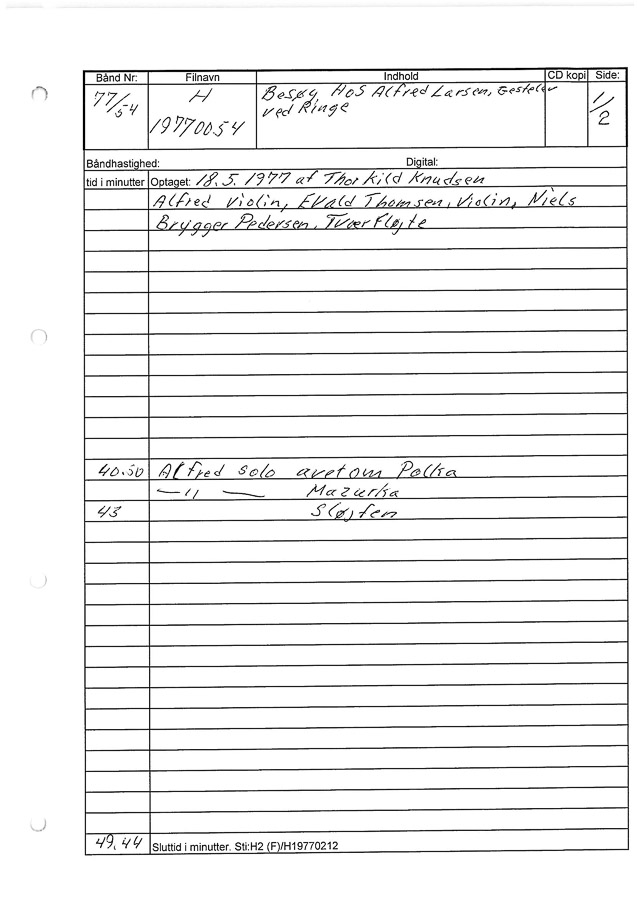 Bånd Nr: Filnavn Indhold CD kopi Side:
77/54 H Besøg Hos Alfred Larsen, Gestelev 1/2
19770054 ved Ringe
Båndhastighed: Digital:
tid i minutter Optaget: 18.5.1977 af Thorkild Knudsen
Alfred violin, Evald Thomsen, Violin, Niels
Brygger Pedersen, Tværfløjte
40.50 Alfred solo Polka
—〃— Mazurka
43 Sløjfen
49.44 Sluttid i minutter. Sti:H2 (F)/H19770212